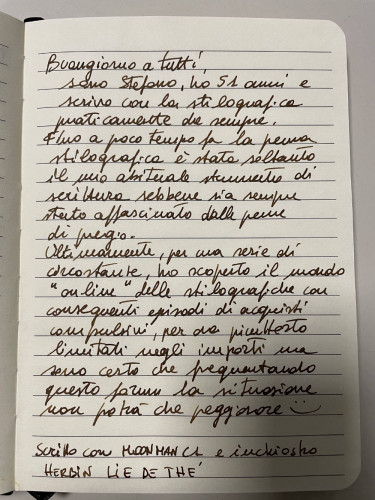 Buongiorno a tutti,
sono Stefano, ho 51 anni e
scrivo con la stilografica
praticamente da sempre.
Fino a poco tempo fa la penna
stilografica è stata soltanto
il mio abituale strumento di
scrittura sebbene sia sempre
stato affascinato dalle penne
di pregio.
Ultimamente, per una serie di
circostanze, ho scoperto il mondo
"online" delle stilografiche con
conseguenti episodi di acquisti
compulsivi, per ora piuttosto
limitati negli importi ma
sono certo che frequentando
questo forum la situazione
non potrà che peggiorare :)
Scritto con MOONMAN C1 e inchiostro
HERBIN LIE DE THÉ